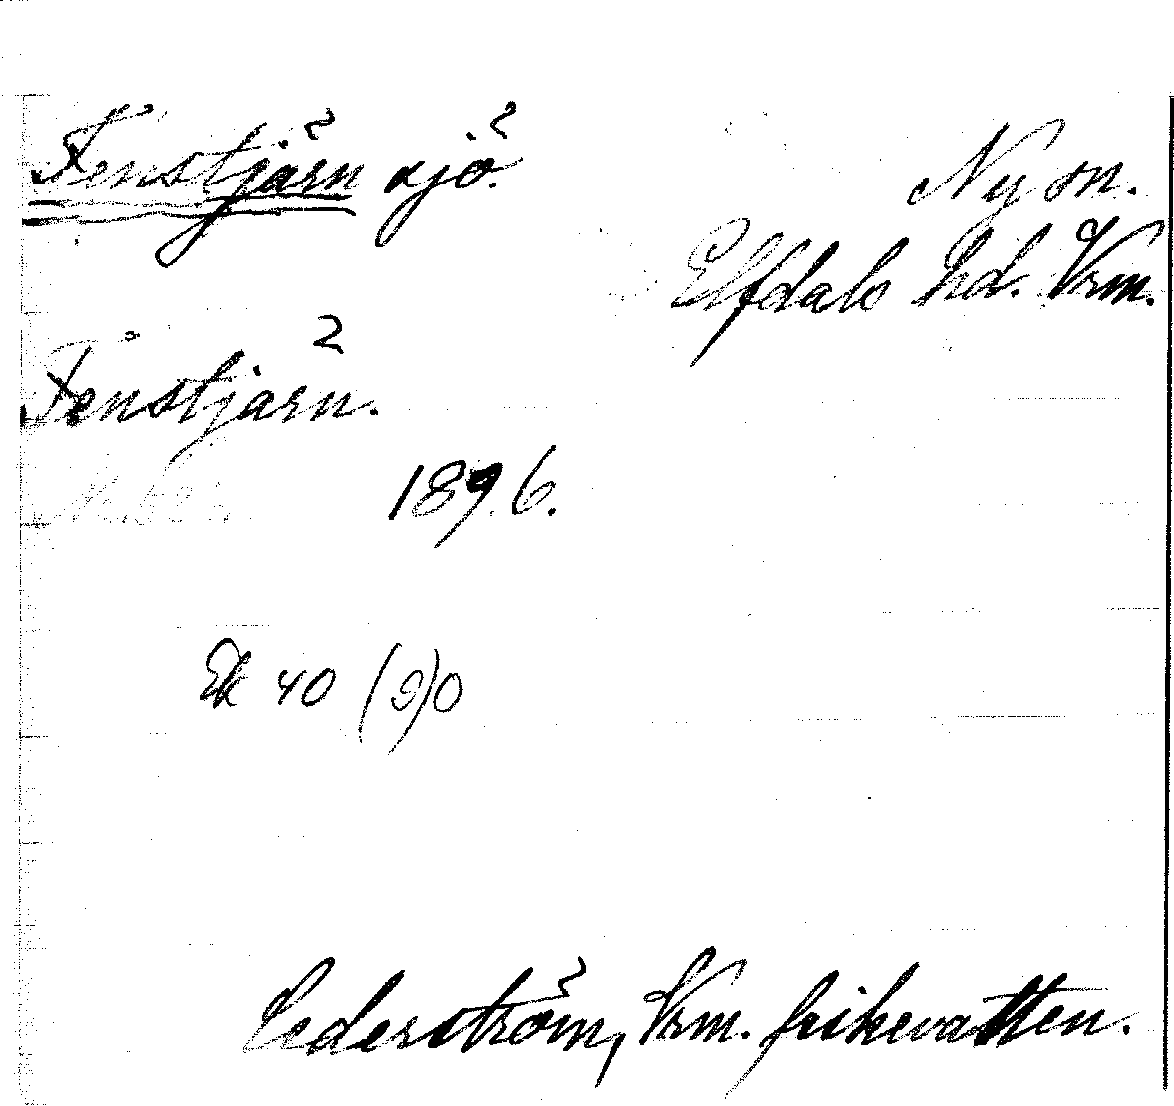 Fenstjärn sjö.
Ny sn.
Elfdals hd. Vrm.
Fenstjärn.
1896.
Ek 40 (S)O
Cederström, Vrm. fiskevatten.